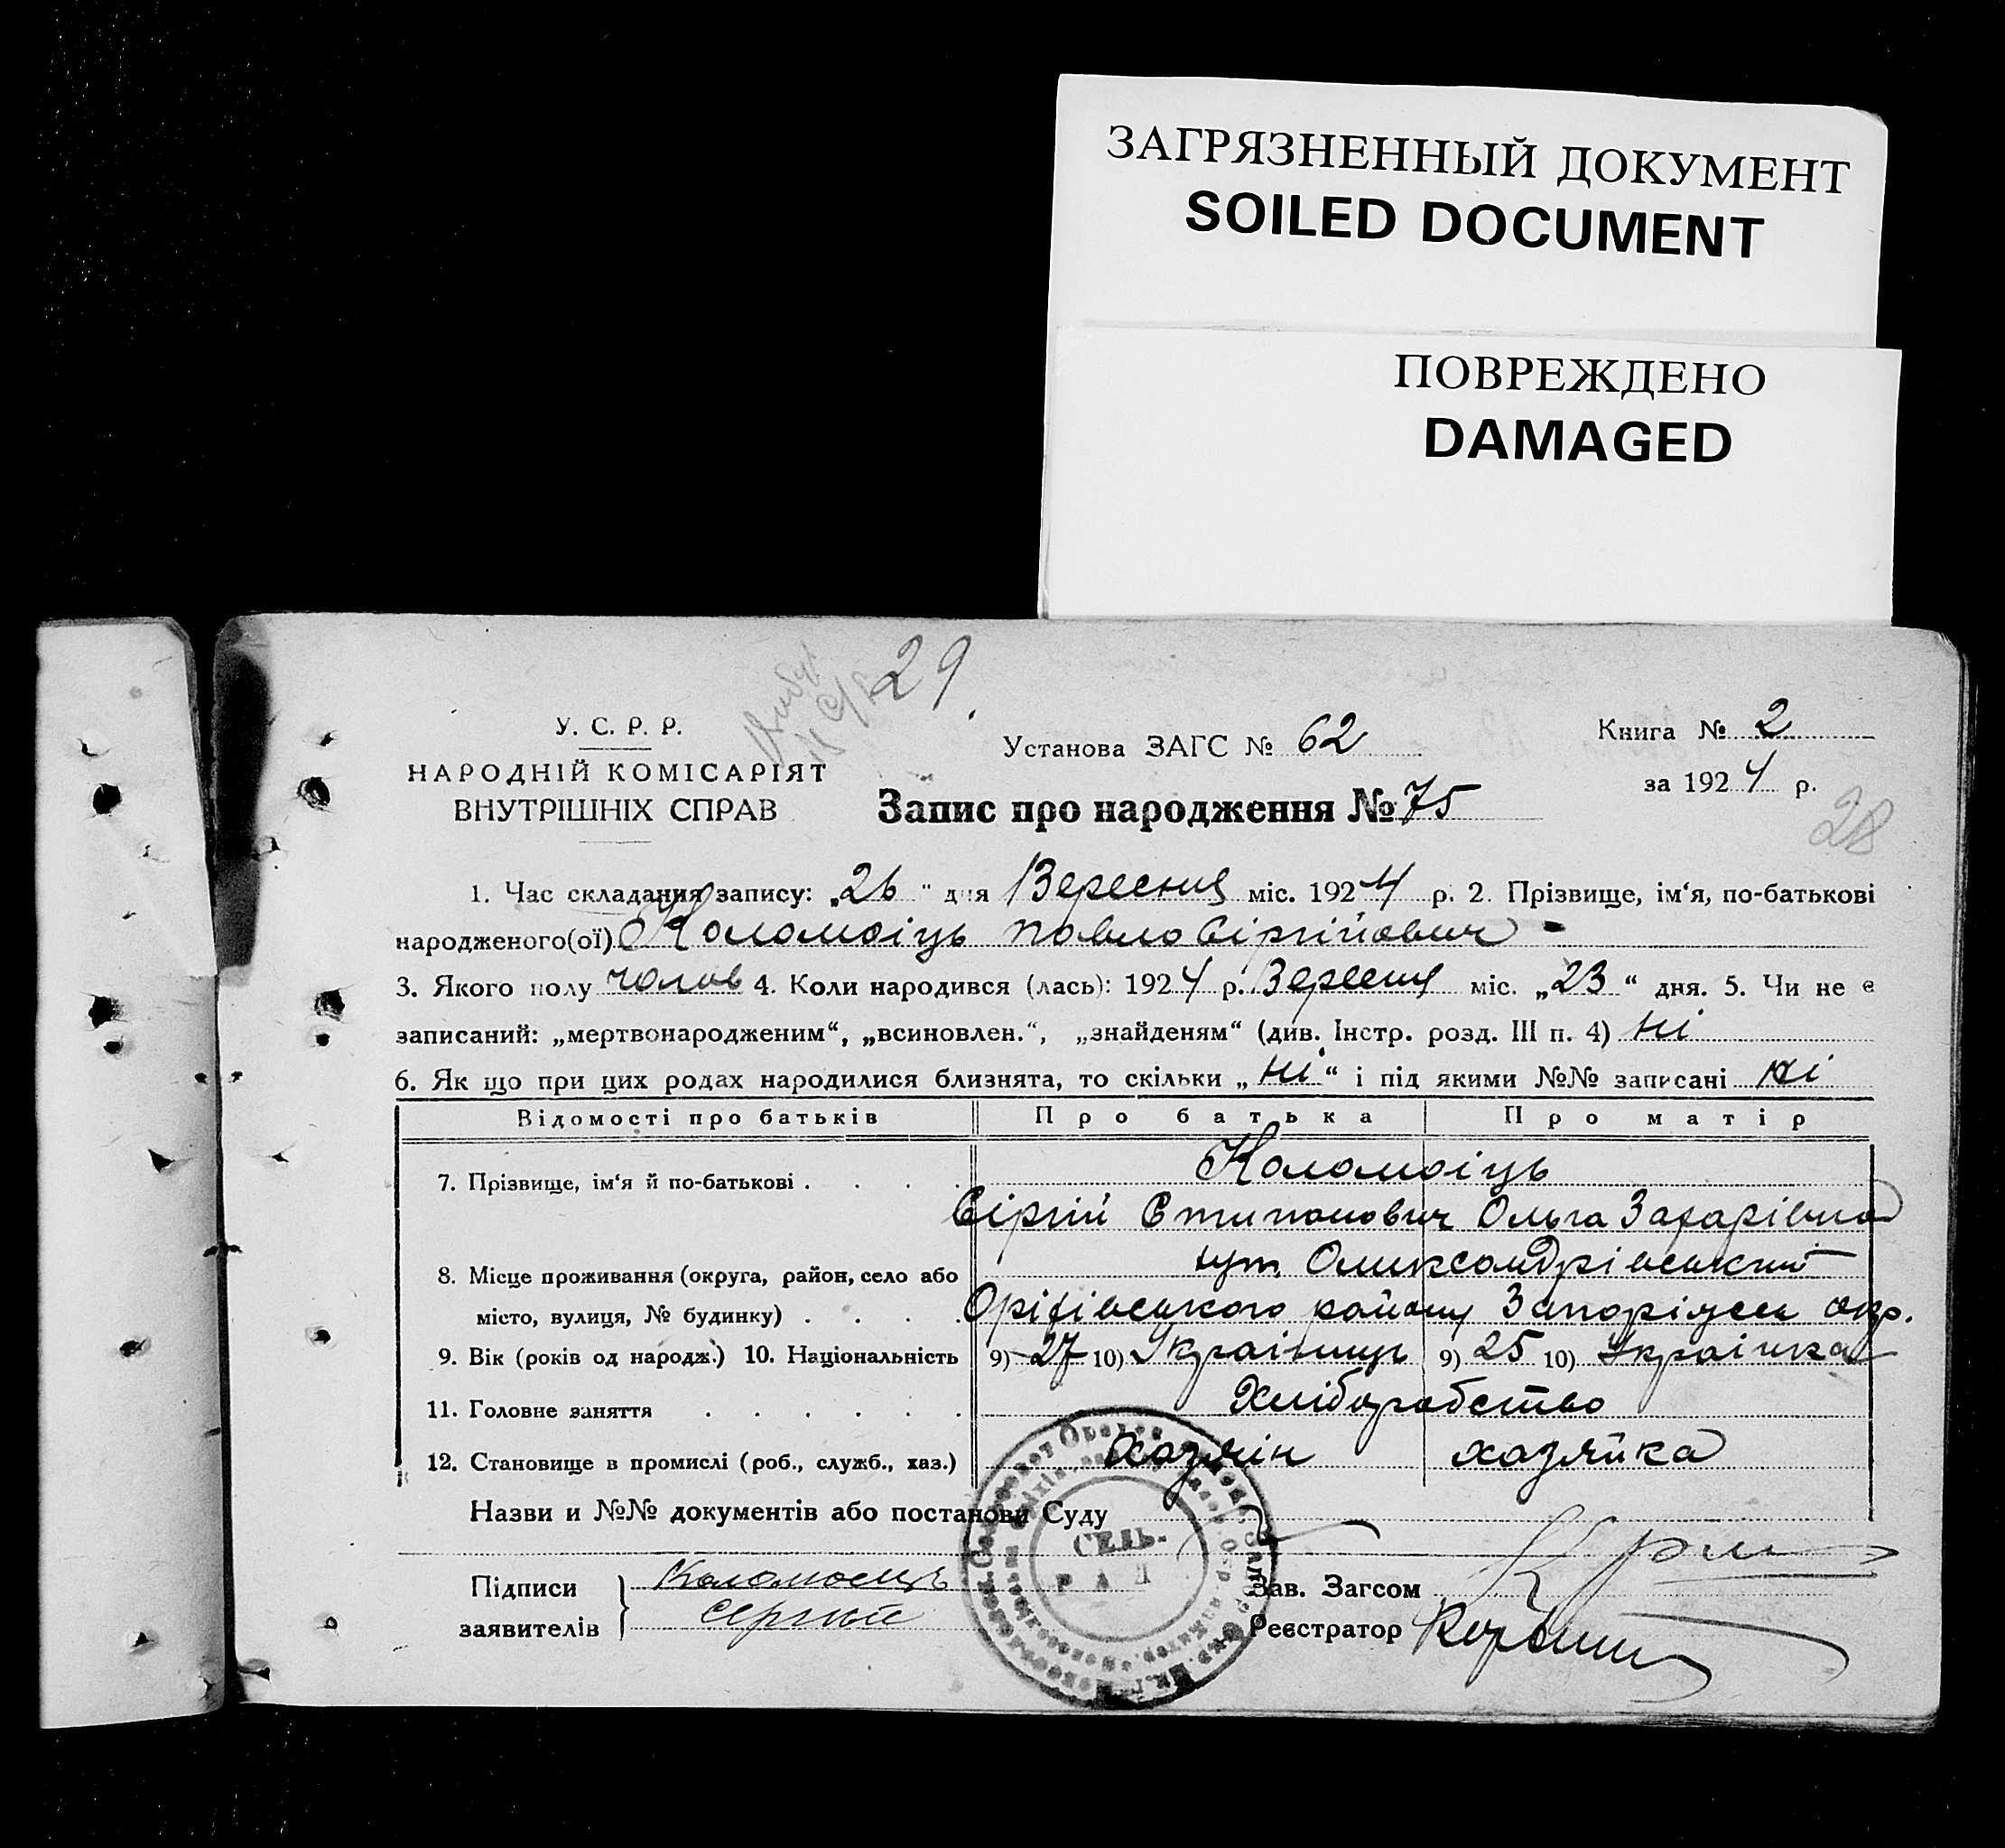 ЗАГРЯЗНЕННЫЙ ДОКУМЕНТ
SOILED DOCUMENT
ПОВРЕЖДЕНО
DAMAGED
29
У. С. Р. Р.
НАРОДНІЙ КОМІСАРІЯТ
ВНУТРІШНІХ СПРАВ
Установа ЗАГС № 62
Запис про народження № 75
Книга № 2
за 1924 р.
28
1. Час складання запису: „26" дня Вересня міс. 1924 р. 2. Прізвище, ім‘я, по-батькові
народженого(ої) Коломоіць Павло Сіргійович
3. Якого полу чолов 4. Коли народився (лась): 1924 р. Вересня міс. „23“ дня. 5. Чи не є
записаний: „мертвонародженим“, „всиновлен.“, „знайденям“ (див. Інстр. розд. III п. 4) ні
6. Як що при цих родах народилися близнята, то скільки „ні“ і під якими №№ записані ні
Відомості про батьків Про батька Про матір
7. Прізвище, ім‘я й по-батькові . . . . Коломоіць
Сіргій Стипанович Ольга Захарівна
8. Місце проживання (округа, район, село або хут. Олександрівський
місто, вулиця, № будинку) . . . . Оріхівського району Запоріжськ окр.
9. Вік (років од народж.) 10. Національність 9) 27 10) Українець 9) 25 10) Українка
11. Головне заняття . . . . . . Хліборобство
12. Становище в промислі (роб., служб., хаз.) Хазяін хазяйка
Назви и №№ документів або постанови Суду
СЕЛЬ-
РАД
Підписи
заявителів
Коломоець
Сергий
Зав. Загсом
Реєстратор